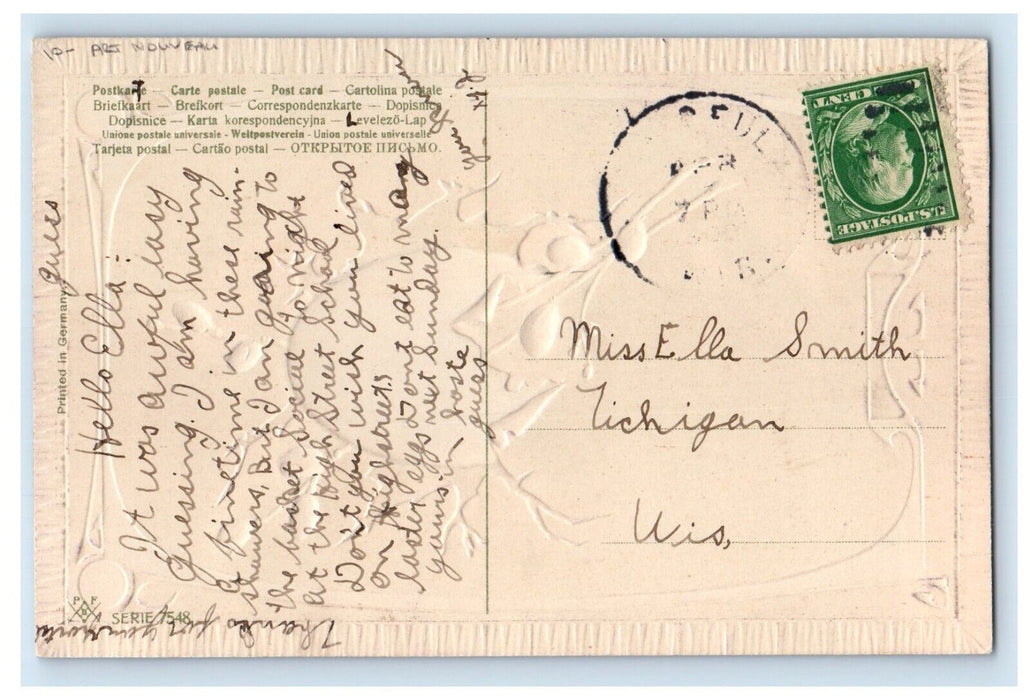 10- ART NOUVEAU
Postkarte — Carte postale — Post card — Cartolina postale
Briefkaart — Brefkort — Correspondenzkarte — Dopisnica
Dopisnice — Karta korespondencyjna — Levelező-Lap
Unione postale universale - Weltpostverein - Union postale universelle
Tarjeta postal — Cartão postal — ОТКРЫТОЕ ПИСЬМО.
Hello Ella:
It was awful easy
guessing. I am having
a fine time in these rain-
showers, But I am goaing to
the basket Social to night
at the High Street School
Don't you wish you lived
on High street?
Easter eggs Dont eat to many
next Sunday.
yours in haste
guess
guess
Thanks for
Printed in Germany
P F B
SERIE 7548
APR
7 P
U.S. POSTAGE
CENT
Miss Ella Smith
Tichigan
Wis,